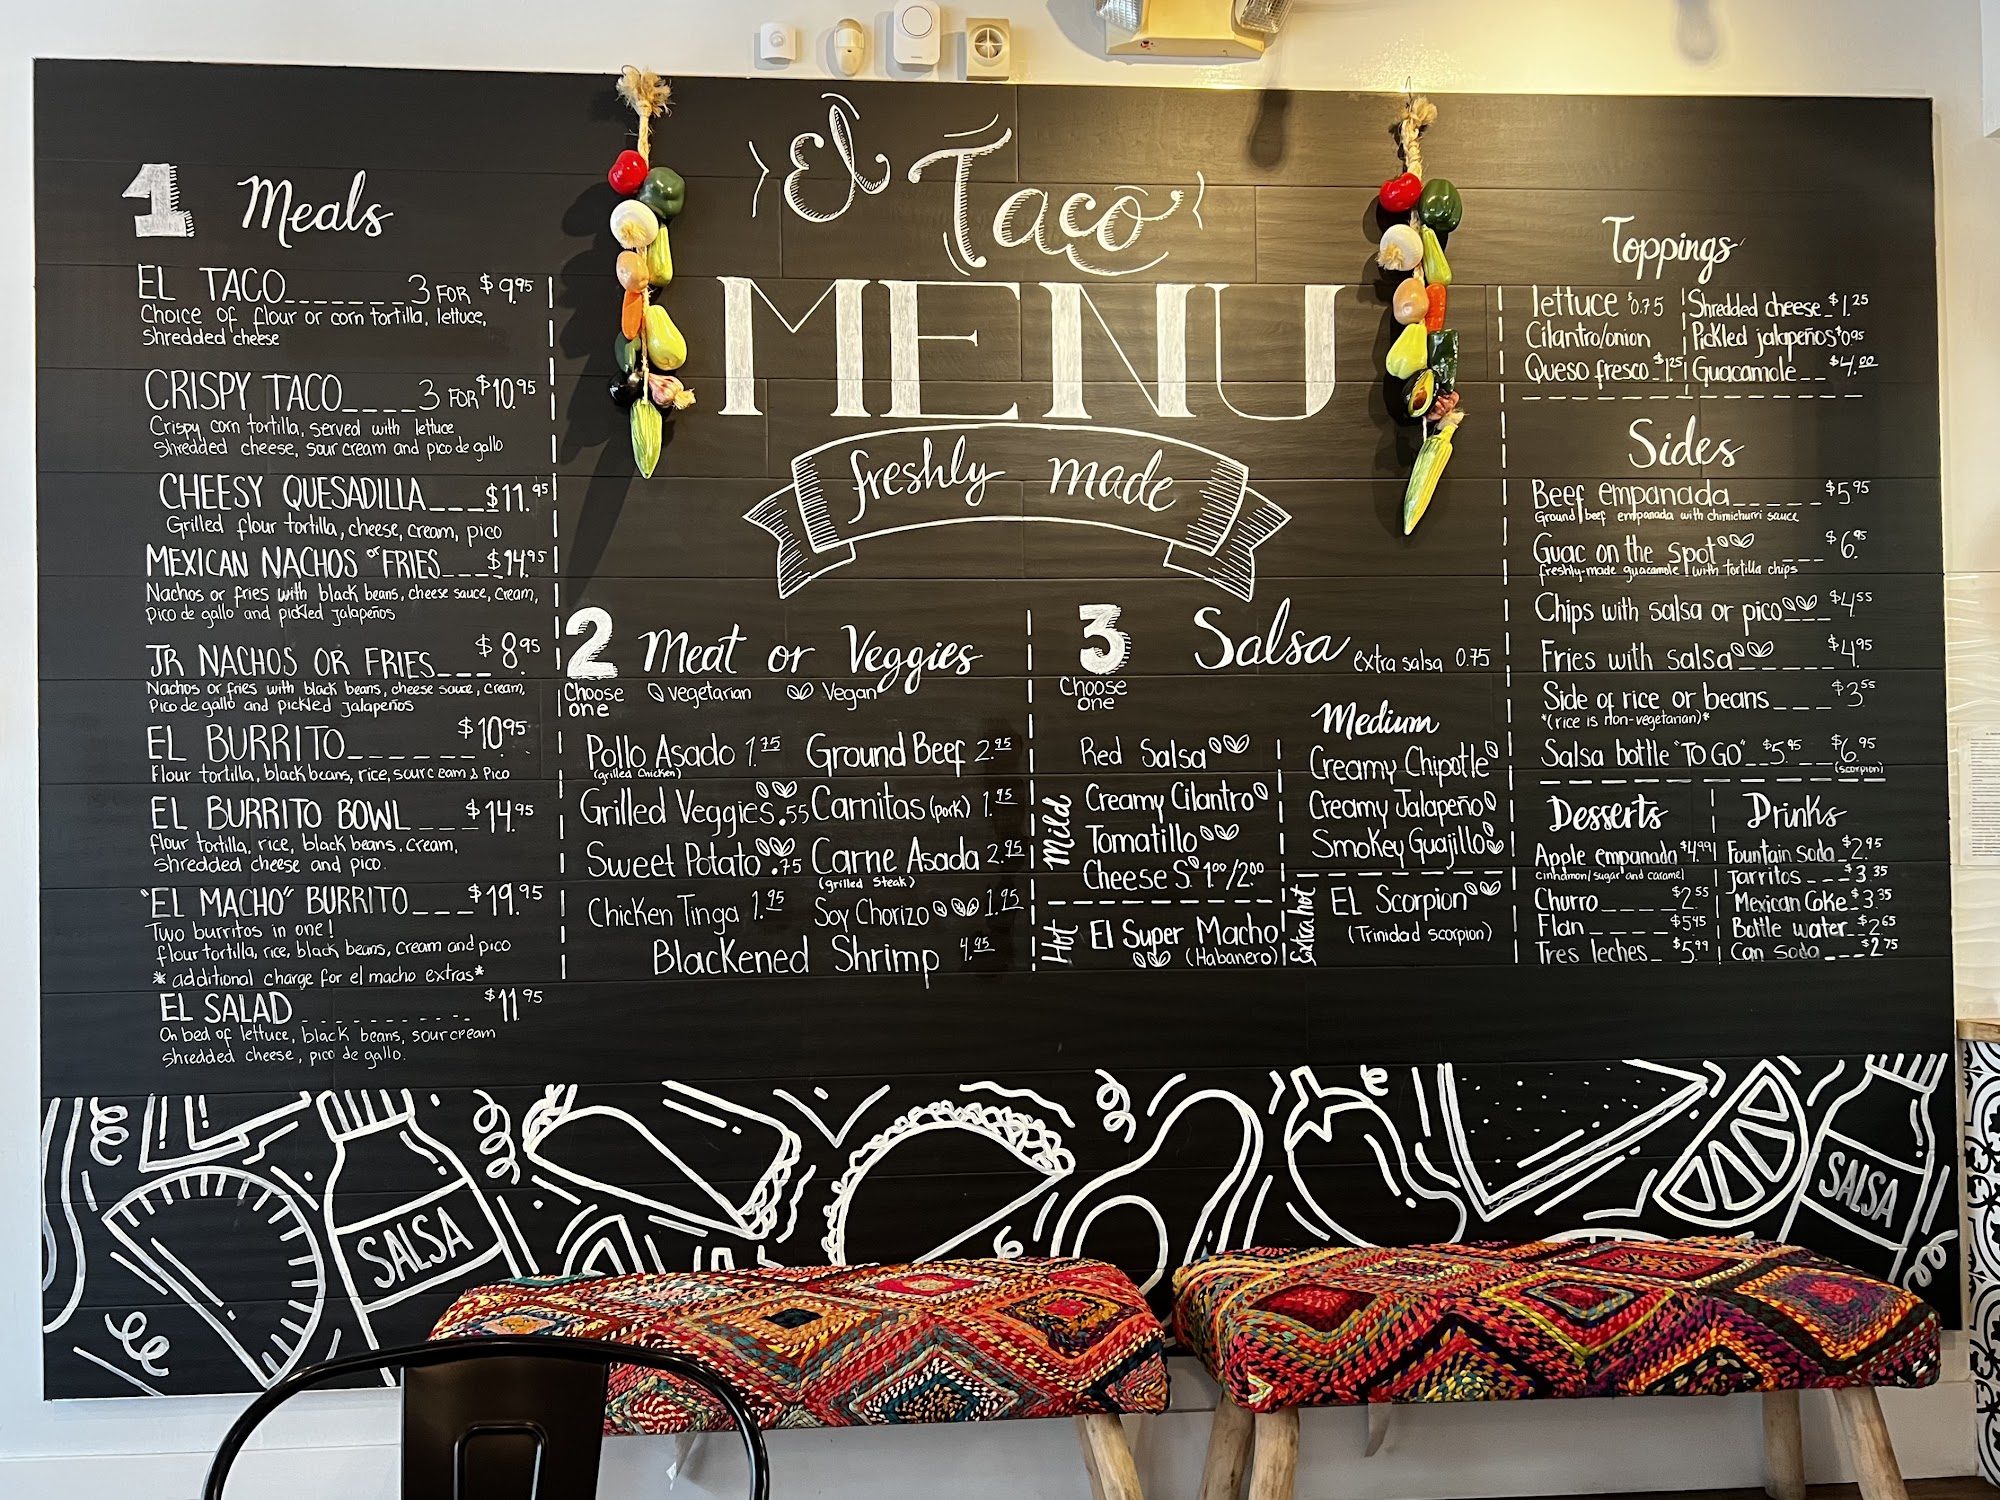 El Taco
MENU
freshly made
1 Meals
EL TACO_______3 FOR $9.95
Choice of flour or corn tortilla, lettuce,
Shredded cheese
CRISPY TACO____3 FOR $10.95
Crispy corn tortilla, served with lettuce
Shredded cheese, sour cream and pico de gallo
CHEESY QUESADILLA___$11.95
Grilled flour tortilla, cheese, cream, pico
MEXICAN NACHOS or FRIES___$14.95
Nachos or fries with black beans, cheese sauce, cream,
Pico de gallo and pickled jalapeños
JR NACHOS OR FRIES___$8.95
Nachos or fries with black beans, cheese sauce, cream,
Pico de gallo and pickled jalapeños
EL BURRITO______$10.95
Flour tortilla, black beans, rice, sour c eam & Pico
EL BURRITO BOWL___$14.95
flour tortilla, rice, black beans, cream,
shredded cheese and pico.
"EL MACHO" BURRITO___$19.95
Two burritos in one!
flour tortilla, rice, black beans, cream and pico
* additional charge for el macho extras*
EL SALAD___________$11.95
On bed of lettuce, black beans, sour cream
Shredded cheese, pico de gallo.
2 Meat or Veggies
Choose one
vegetarian Vegan
Pollo Asado 1.75
(grilled chicken)
Grilled Veggies .55
Sweet Potato .75
Chicken Tinga 1.95
Ground Beef 2.95
Carnitas (pork) 1.95
Carne Asada 2.95
(grilled steak)
Soy Chorizo 1.95
Blackened Shrimp 4.95
3 Salsa extra salsa 0.75
Choose one
Mild
Red Salsa
Creamy Cilantro
Tomatillo
Cheese S. 1.00/2.00
Medium
Creamy Chipotle
Creamy Jalapeño
Smokey Guajillo
Hot
El Super Macho
(Habanero)
Extra hot
EL Scorpion
(Trinidad scorpion)
Toppings
lettuce $0.75
Cilantro/onion
Queso fresco_$1.25
Shredded cheese_$1.25
Pickled jalapeños $0.95
Guacamole__$4.00
Sides
Beef empanada_____$5.95
Ground beef empanada with chimichurri sauce
Guac on the spot___$6.95
freshly-made guacamole with tortilla chips
Chips with salsa or pico___$4.55
Fries with salsa______$4.95
Side of rice or beans___$3.55
*(rice is non-vegetarian)*
Salsa bottle "TO GO"__$5.95__$6.95
(scorpion)
Desserts
Apple empanada $4.99
cinnamon/sugar and caramel
Churro_____$2.55
Flan_____$5.45
Tres leches_$5.99
Drinks
Fountain soda_$2.95
Jarritos___$3.35
Mexican Coke_$3.35
Bottle water_$2.65
Can soda___$2.75
SALSA
SALSA